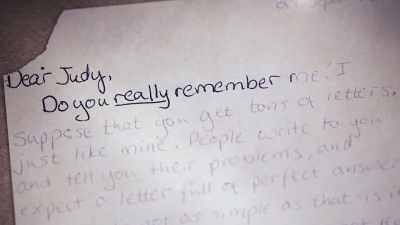 Dear Judy,
Do you really remember me? I
suppose that you get tons of letters,
just like mine. People write to you
and tell you their problems, and
expect a letter full of perfect answe
not as simple as that is i